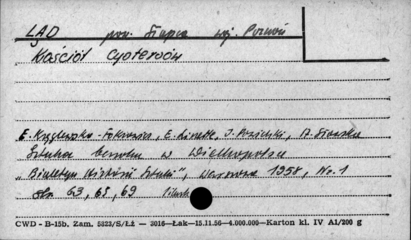 LĄD pow. Słupca woj. Poznań
Kościół Cystersów
E. Linette,
Sztuka baroku w Wielkopolsce
„Biuletyn Historii Sztuki", Warszawa 1958, No. 1
Str. 63, 65, 69
CWD - B-15b, Zam. 5823/S/ŁŻ — 3016—Łąk—15.11.56—4.000.000—Karton kl. IV A1/200 g